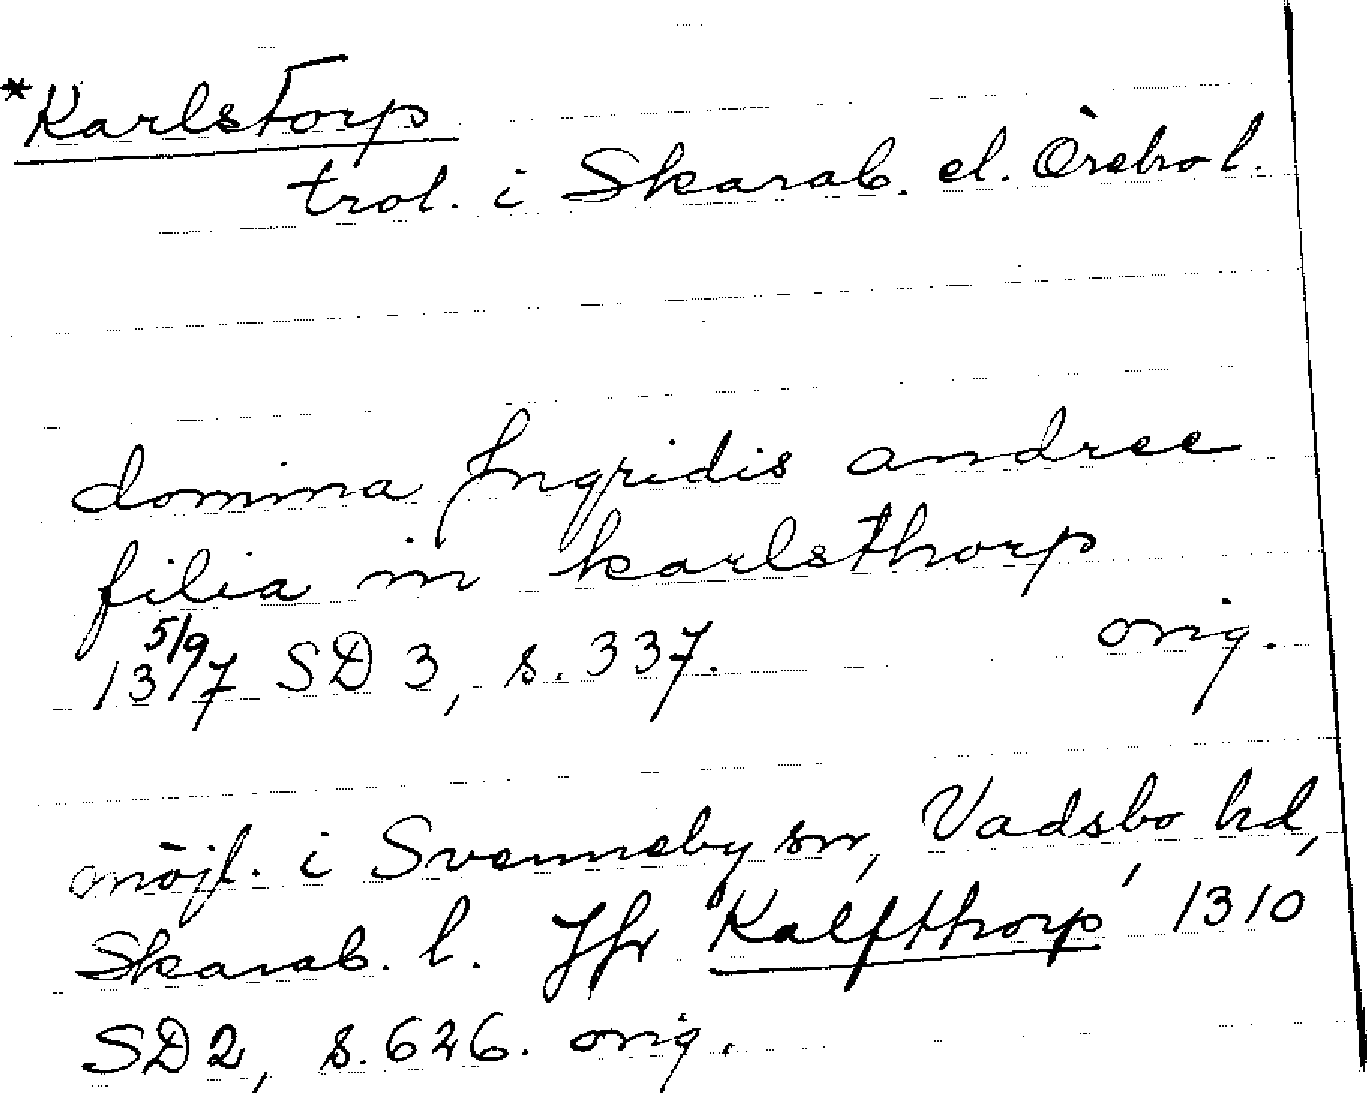 *Karlstorp
trol. i Skarab. el. Örebro l.
domina Jngridis andree
filia in karlsthorp
13 5/9 17 SD 3, s. 337. orig.
möjl. i Svenneby sn, Vadsbo hd,
Skarab. l. Jfr Kalfthorp, 1310
SD 2, s. 626. orig.